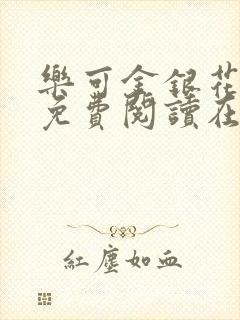 樂可金銀花
免費閱讀在
紅塵如血